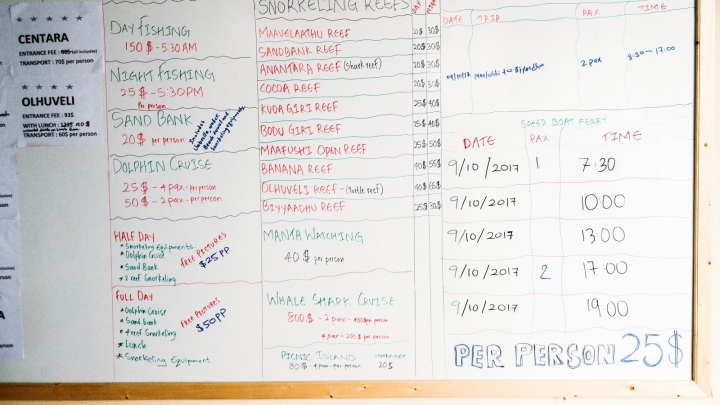 CENTARA
ENTRANCE FEE :
TRANSPORT : 70$ per person
OLHUVELI
ENTRANCE FEE : 93$
WITH LUNCH :
TRANSPORT : 60$ per person
DAY FISHING
150 $ - 5:30AM
NIGHT FISHING
25 $ - 5:30PM
Per person
SAND BANK
20$ per person
DOLPHIN CRUISE
25 $ - 4 pax - per person
50 $ - 2 pax - per person
HALF DAY
* Snorkeling Equipments
* Dolphin Cruise
* Sand Bank
* 2 reef Snorkeling
FREE PICTURES
$25PP
FULL DAY
* Dolphin Cruise
* Sand bank
* 4 reef Snorkeling
* Lunch
* Snorkeling Equipment
FREE PICTURES
$50PP
SNORKELING REEFS
MAAVELAATHU REEF 20$ 30$
SANDBANK REEF 20$ 30$
ANANTARA REEF (Shark reef) 20$ 30$
COCOA REEF 20$ 30$
KUDA GIRI REEF 25$ 40$
BODU GIRI REEF 25$ 40$
MAAFUSHI OPEN REEF 25$ 50$
BANANA REEF 40$ 55$
OLHUVELI REEF - (Turtle reef) 40$
BIYYAADHU REEF 25$ 30$
MANTA WATCHING
40 $ per person
WHALE SHARK CRUISE
800 $ - 2 pax - per person
4 pax - 200 $ per person
PICNIC ISLAND
80$ - 4 pax - per person 20$
DATE TRIP PAX TIME
2 pax 8:30 - 17:00
SPEED BOAT FERRY
DATE PAX TIME
9/10/2017 1 7:30
9/10/2017 10:00
9/10/2017 13:00
9/10/2017 2 17:00
9/10/2017 19:00
PER PERSON 25$